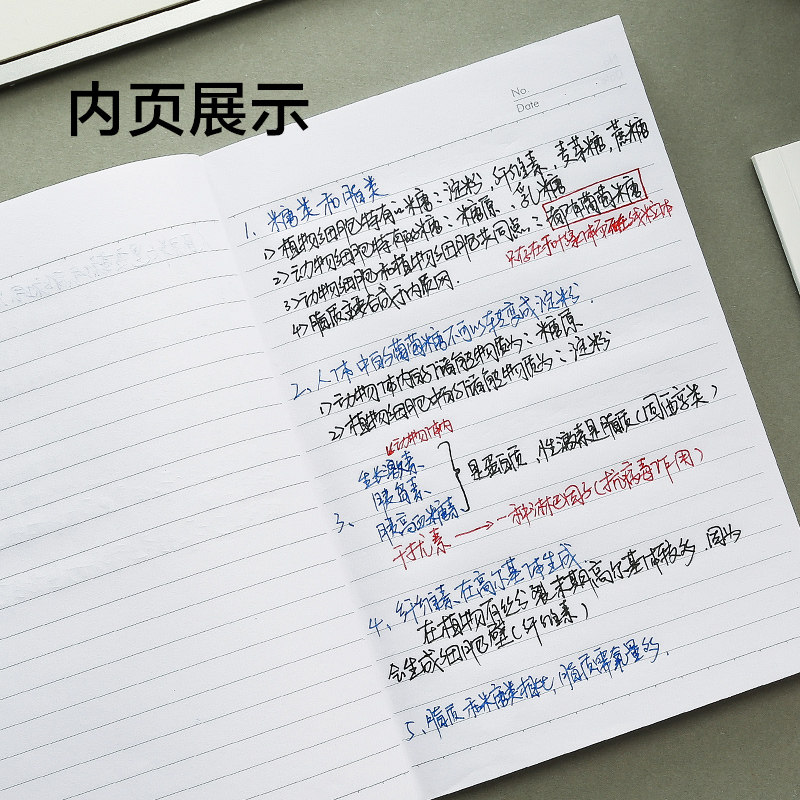 内页展示
No.
Date
1. 糖类和脂类
1) 植物细胞特有的糖：淀粉，纤维素，麦芽糖，蔗糖
2) 动物细胞特有的糖：糖原、乳糖
3) 动物细胞和植物细胞共同点：都有葡萄糖
只存在于叶绿体而不在线粒体
4) 脂质主要合成于内质网.
2、人体中的葡萄糖不可以转变成淀粉.
1) 动物体内的储能物质为：糖原
2) 植物细胞中的储能物质为：淀粉
动物体内
3、
生长激素
胰岛素
胰高血糖素
是蛋白质，性激素是脂质(固醇类)
干扰素 → 一种淋巴因子(抗病毒作用)
4、纤维素、在高尔基体生成
在植物有丝分裂末期高尔基体较多，因为
会生成细胞壁(纤维素)
5、脂质和糖类相比，脂质需氧量多.